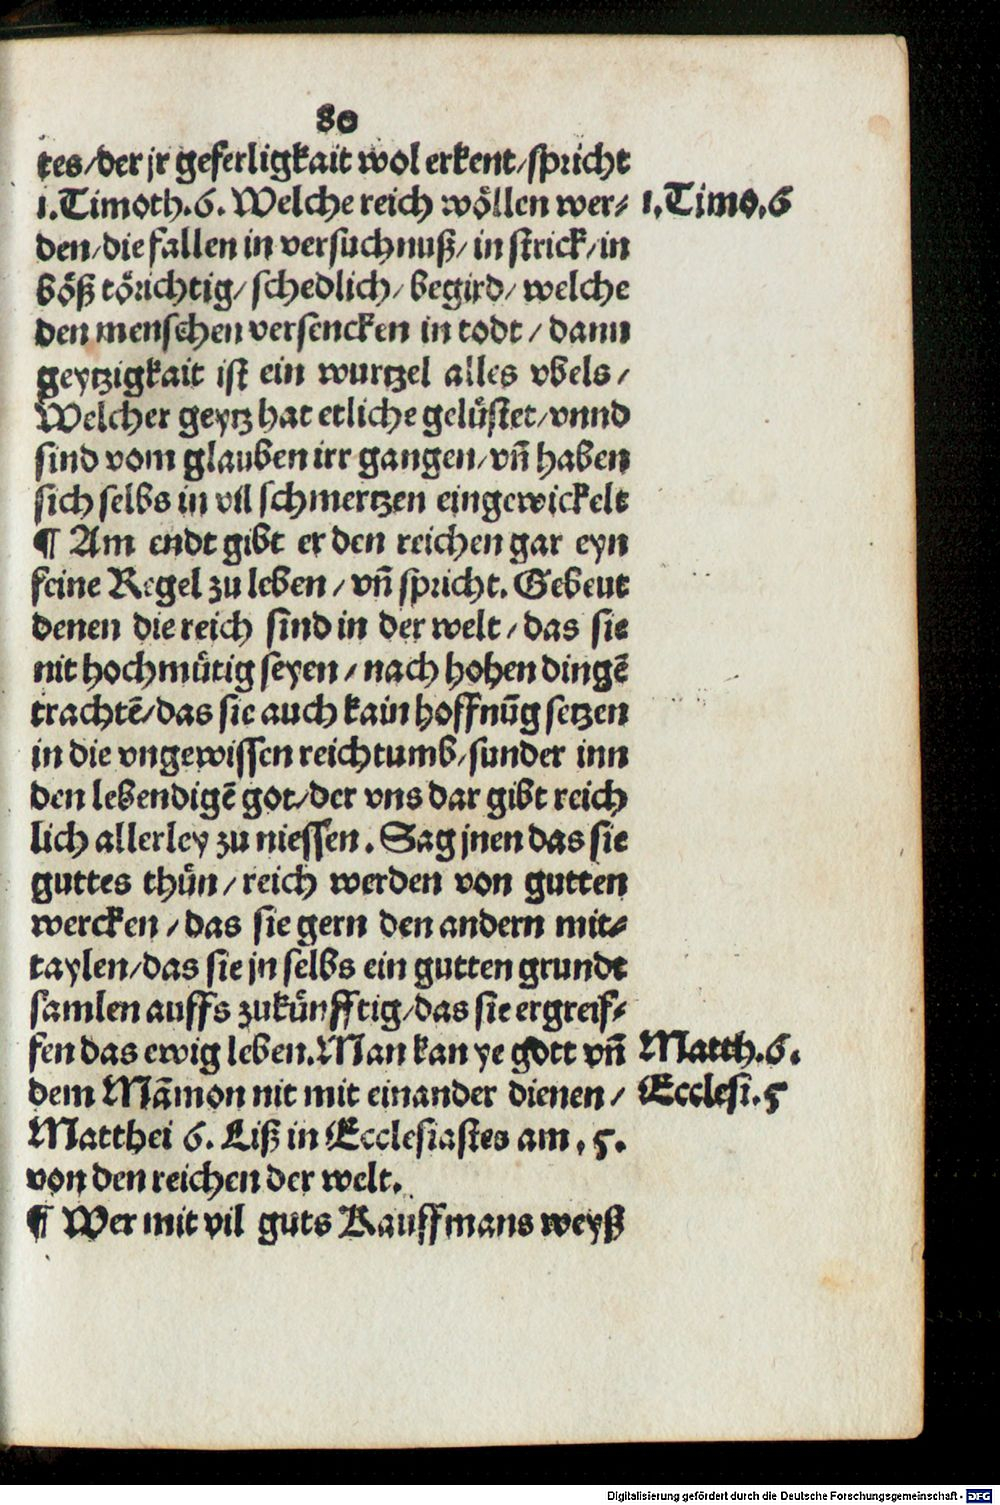 80
tes/der jr geferligkait wol erkent/spricht
1.Timoth.6. Welche reich wöllen wer⸗ 1.Timo.6
den/die fallen in versuchnuß/in strick/in
böß törichtig/schedlich/begird/welche
den menschen versencken in todt/dann
geytzigkait ist ein wurtzel alles vbels/
Welcher geytz hat etliche gelüstet/vnnd
sind vom glauben irr gangen/vñ haben
sich selbs in vil schmertzen eingewickelt
¶ Am endt gibt er den reichen gar eyn
feine Regel zu leben/vñ spricht. Gebeut
denen die reich sind in der welt/das sie
nit hochmütig seyen/nach hohen dingẽ
trachtẽ/das sie auch kain hoffnũg setzen
in die vngewissen reichtumb/sunder inn
den lebendigẽ got/der vns dar gibt reich
lich allerley zu niessen. Sag jnen das sie
guttes thün/reich werden von gutten
wercken/das sie gern den andern mit⸗
taylen/das sie jn selbs ein gutten grundt
samlen auffs zukünfftig/das sie ergreif⸗
fen das ewig leben.Man kan ye gott vñ Matth.6.
dem Mãmon nit mit einander dienen/ Ecclesi.5
Matthei 6. Liß in Ecclesiastes am.5.
von den reichen der welt.
¶ Wer mit vil guts Kauffmans weyß
Digitalisierung gefördert durch die Deutsche Forschungsgemeinschaft - DFG